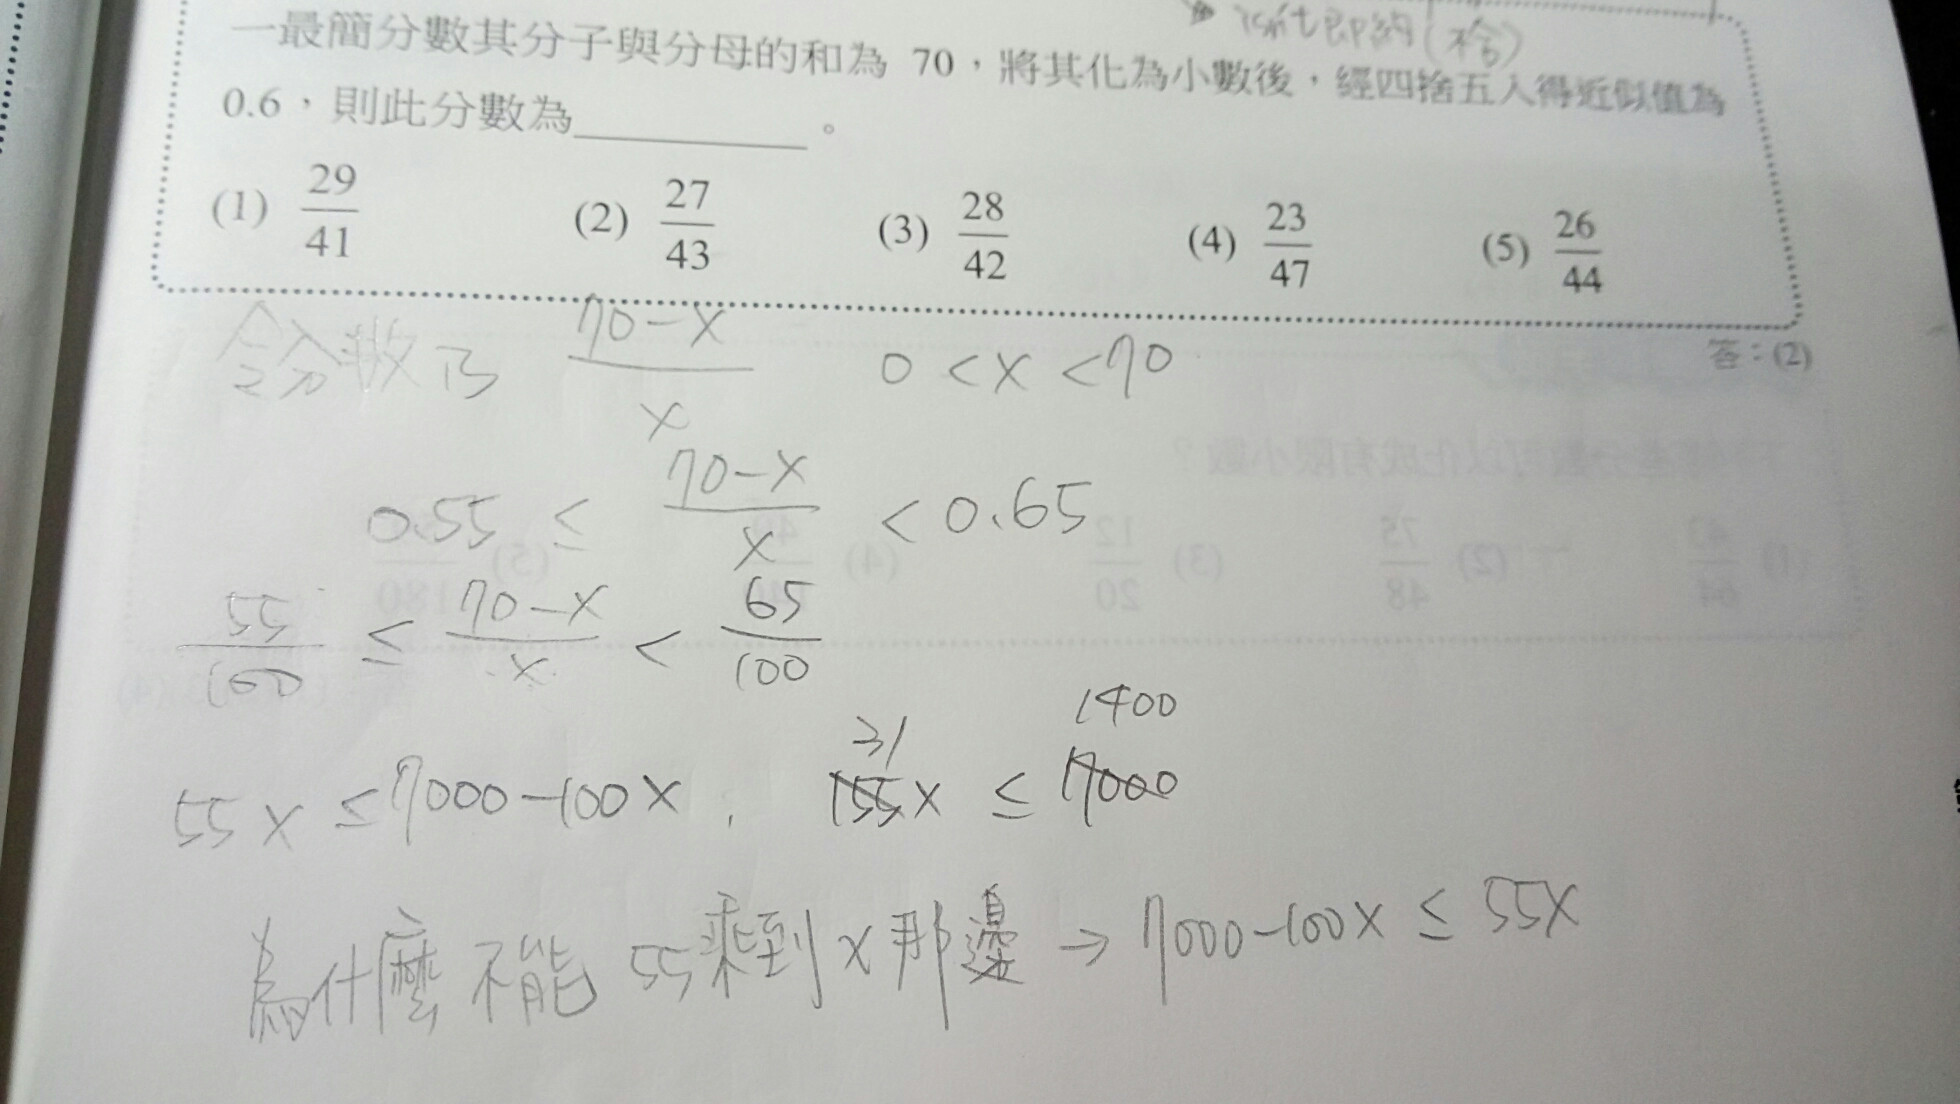 一最簡分數其分子與分母的和為 70，將其化為小數後，經四捨五入得近似值為
0.6，則此分數為________。
(1) 29/41 (2) 27/43 (3) 28/42 (4) 23/47 (5) 26/44
答：(2)
令分數為 70-x/x 0<x<70
0.55 ≤ 70-x/x < 0.65
55/100 ≤ 70-x/x < 65/100
31 1400
55x ≤ 7000-100x , 155x ≤ 7000
為什麼不能 55乘到x那邊 → 7000-100x ≤ 55x